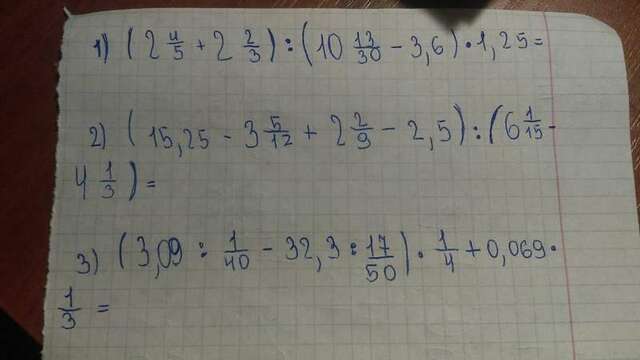 1) (2 4/5 + 2 2/3) : (10 13/30 - 3,6) · 1,25 =
2) (15,25 - 3 5/12 + 2 2/9 - 2,5) : (6 1/15 -
4 1/3) =
3) (3,09 : 1/40 - 32,3 : 17/50) · 1/4 + 0,069 ·
1/3 =